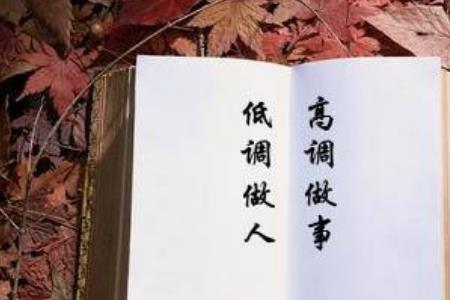 高调做事
低调做人